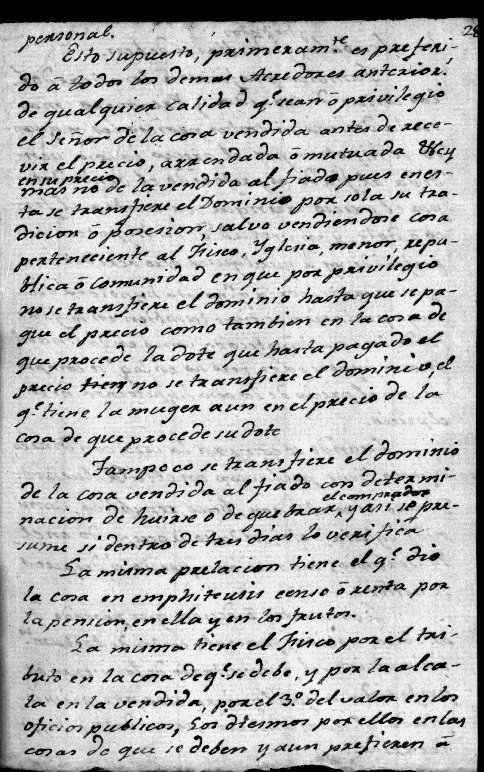 28
personal.
Esto supuesto, primeram.te es preferi-
do â todos los demas Acredores anterior.s
de qualquier calidad q.e sean ô privilegio
el Señor de la cosa vendida antes de rece-
vir el precio, arrendada ô mutuada &c y
en su precio
mas no de la vendida al fiado pues en es-
ta se transfiere el Dominio por sola su tra-
dicion ô posesion, salvo vendiendose cosa
perteneciente al Fisco, Yglesia, menor, repu-
blica ô comunidad en que por privilegio
no se transfiere el dominio hasta que se pa-
gue el precio como tambien en la cosa de
que procede la dote que hasta pagado el
precio no se transfiere el dominio, el
q.e tiene la muger aun en el precio de la
cosa de que procede su dote
Tampoco se transfiere el dominio
de la cosa vendida al fiado con determi-
el comprador
nacion de huirse ô de quebrar, y asi se pre-
sume si dentro de tres dias lo verifica
La misma prelacion tiene el q.e dio
la cosa en emphiteusis censo ô renta por
la pension, en ella y en los frutos.
La misma tiene el Fisco por el tri-
buto en la cosa de q.e se debe, y por la alca-
la en la vendida, por el 3.o del valor en los
oficios publicos, Los diesmos por ellos en las
cosas de que se deben y aun prefieren â